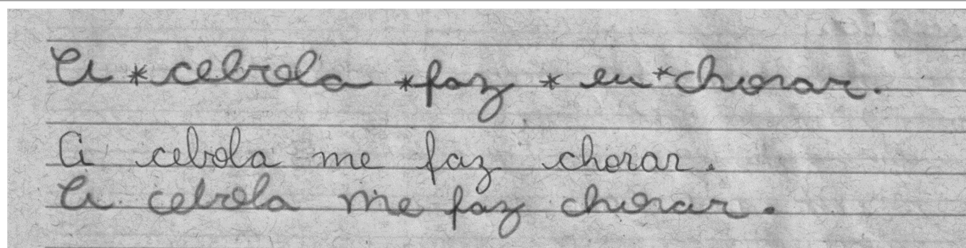 A * cebola * faz * eu * chorar.
A cebola me faz chorar.
A cebola me faz chorar.